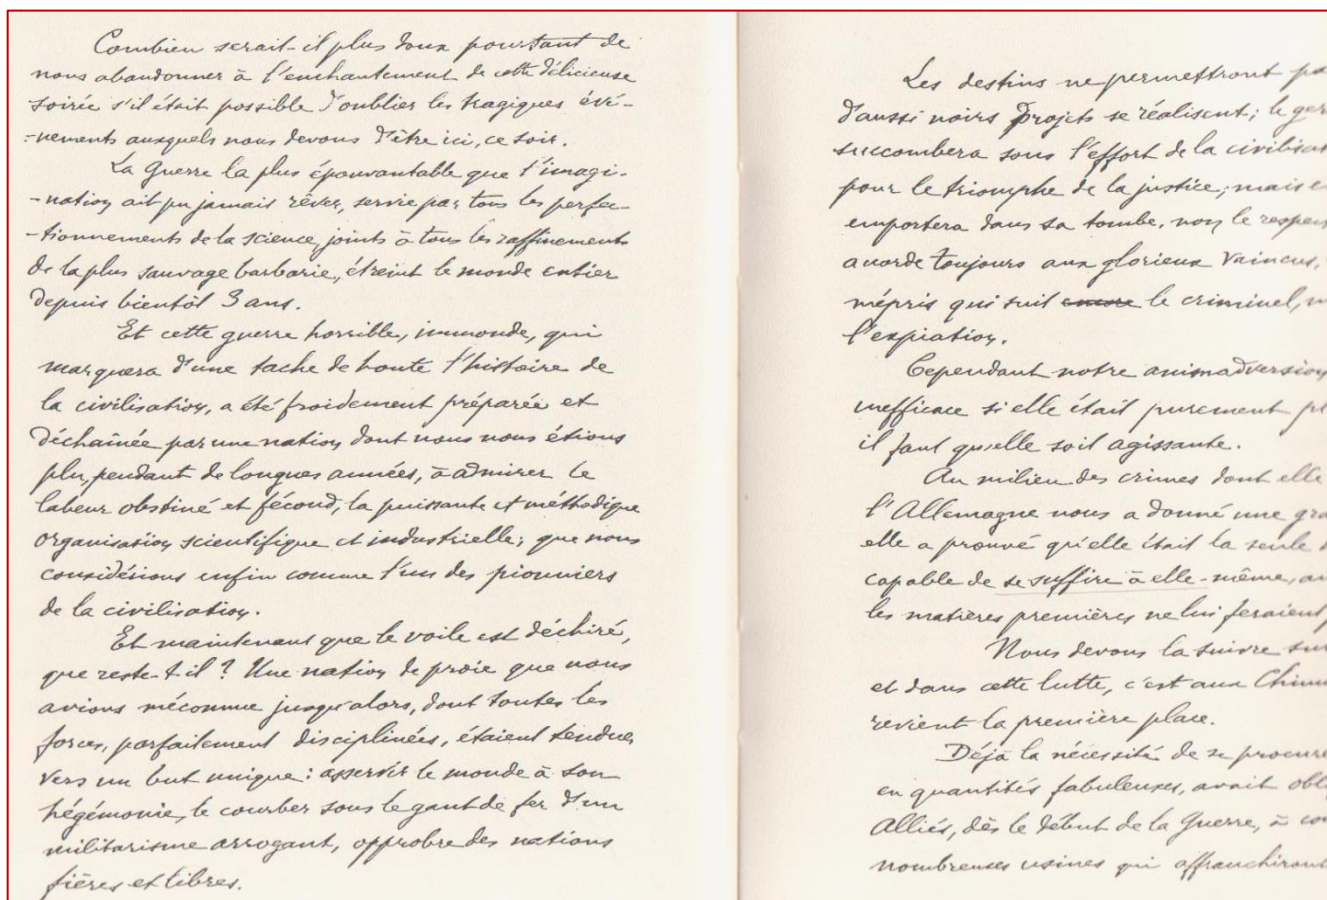 Combien serait-il plus doux pourtant de
nous abandonner à l'enchantement de cette délicieuse
soirée s'il était possible d'oublier les tragiques évé-
-nements auxquels nous devons d'être ici, ce soir.
La Guerre la plus épouvantable que l'imagi-
-nation ait pu jamais rêver, servie par tous les perfec-
-tionnements de la science, joints à tous les raffinements
de la plus sauvage barbarie, étreint le monde entier
depuis bientôt 3 ans.
Et cette guerre horrible, immonde, qui
marquera d'une tache de honte l'histoire de
la civilisation, a été froidement préparée et
déchaînée par une nation dont nous nous étions
plu, pendant de longues années, à admirer le
labeur obstiné et fécond, la puissante et méthodique
organisation scientifique et industrielle; que nous
considérions enfin comme l'un des pionniers
de la civilisation.
Et maintenant que le voile est déchiré,
que reste-t-il? Une nation de proie que nous
avions méconnue jusqu'alors, dont toutes les
forces, parfaitement disciplinées, étaient tendues
vers un but unique: asservir le monde à son
hégémonie, le courber sous le gant de fer d'un
militarisme arrogant, opprobre des nations
fières et libres.
Les destins ne permettront pa
d'aussi noirs projets se réalisent; le ger
succombera sous l'effort de la civilisat
pour le triomphe de la justice; mais e
emportera dans sa tombe, non le respec
accorde toujours aux glorieux vaincus,
mépris qui suit encore le criminel, m
l'expiation.
Cependant notre animadversion
inefficace si elle était purement pl
il faut qu'elle soit agissante.
Au milieu des crimes dont elle
l'Allemagne nous a donné une gra
elle a prouvé qu'elle était la seule
capable de se suffire à elle-même, au
les matières premières ne lui feraient p
Nous devons la suivre sur
et dans cette lutte, c'est aux Chimi
revient la première place.
Déjà la nécessité de se procure
en quantités fabuleuses, avait obli
Alliés, dès le début de la Guerre, à con
nombreuses usines qui affranchiront